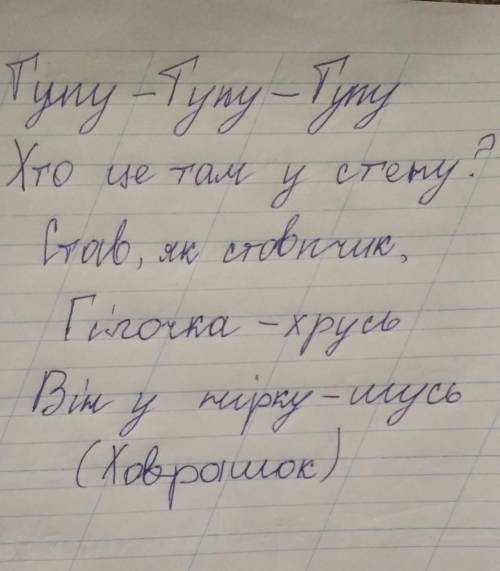 Гупу - Гупу - Гупу
Хто це там у степу?
Став, як стовпчик,
Гілочка - хрусь
Він у нірку - шусь
(Ховрашок)